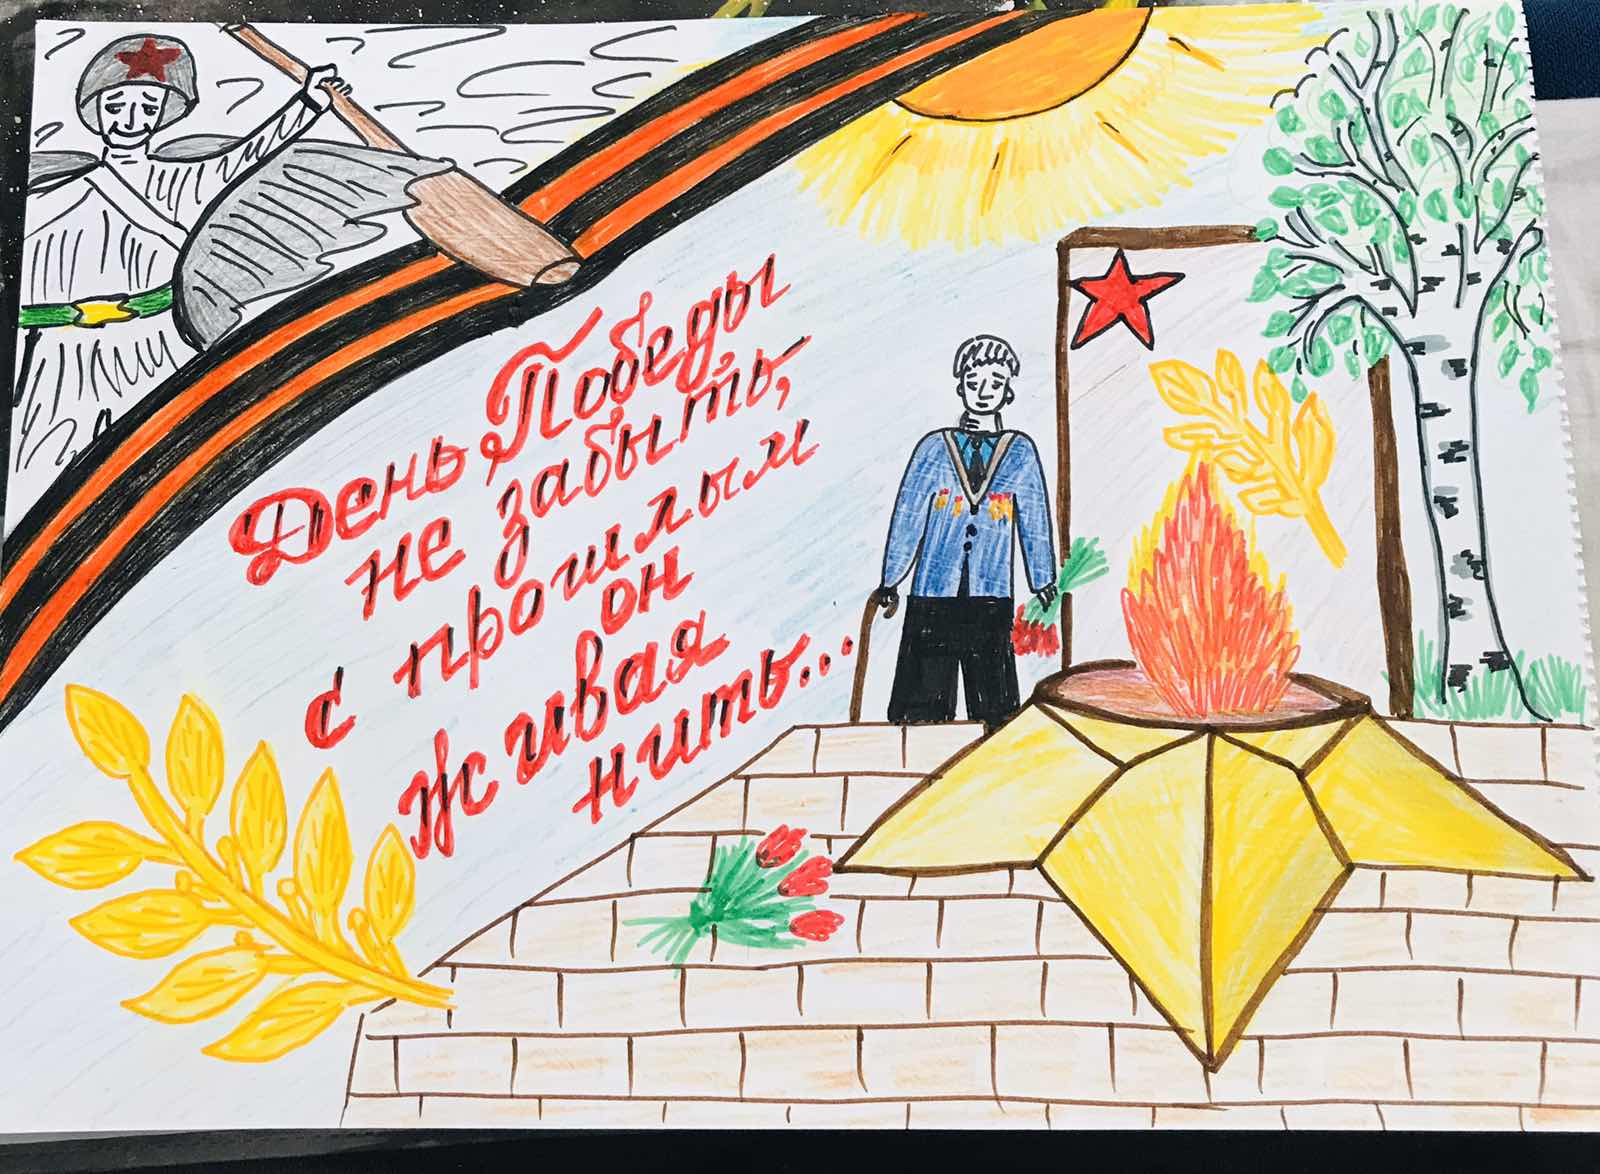 День Победы
не забыть,
с прошлым
он
живая
нить...